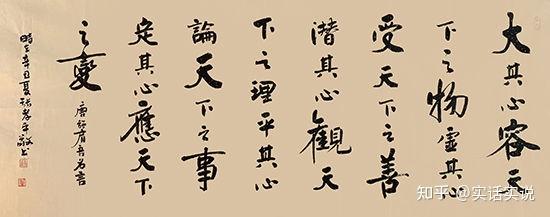 大其心容天
下之物虛其心
受天下之善
潛其心觀天
下之理平其心
論天下之事
定其心應天下
之變
名言
時在辛丑夏 孝平敬上
知乎 @实话实说